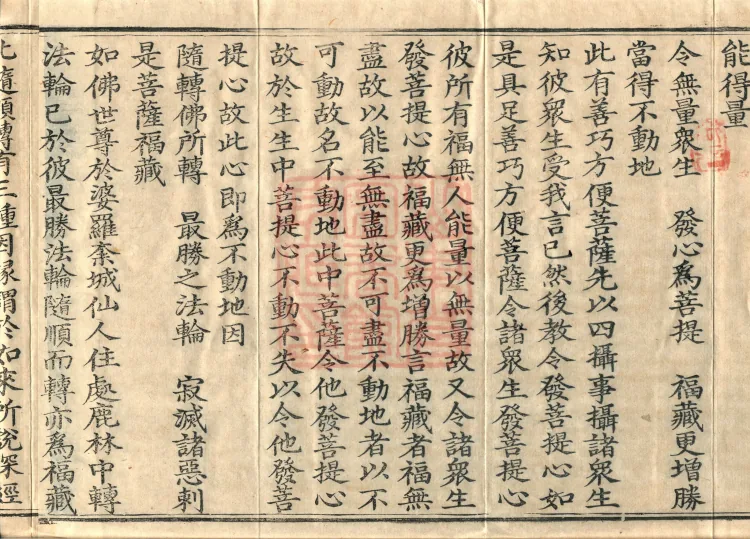 能得量
令無量衆生　發心爲菩提　福藏更增勝
當得不動地
此有善巧方便菩薩先以四攝事攝諸衆生
知彼衆生受我言已然後教令發菩提心如
是具足善巧方便菩薩令諸衆生發菩提心
彼所有福無人能量以無量故又令諸衆生
發菩提心故福藏更爲增勝言福藏者福無
盡故以能至無盡故不可盡不動地者以不
可動故名不動地此中菩薩令他發菩提心
故於生生中菩提心不動不失以令他發菩
提心故此心即爲不動地因
隨轉佛所轉　最勝之法輪　寂滅諸惡刺
是菩薩福藏
如佛世尊於婆羅柰城仙人住處鹿林中轉
法輪已於彼最勝法輪隨順而轉亦爲福藏
此隨順轉有三種因緣謂於如來所說深經